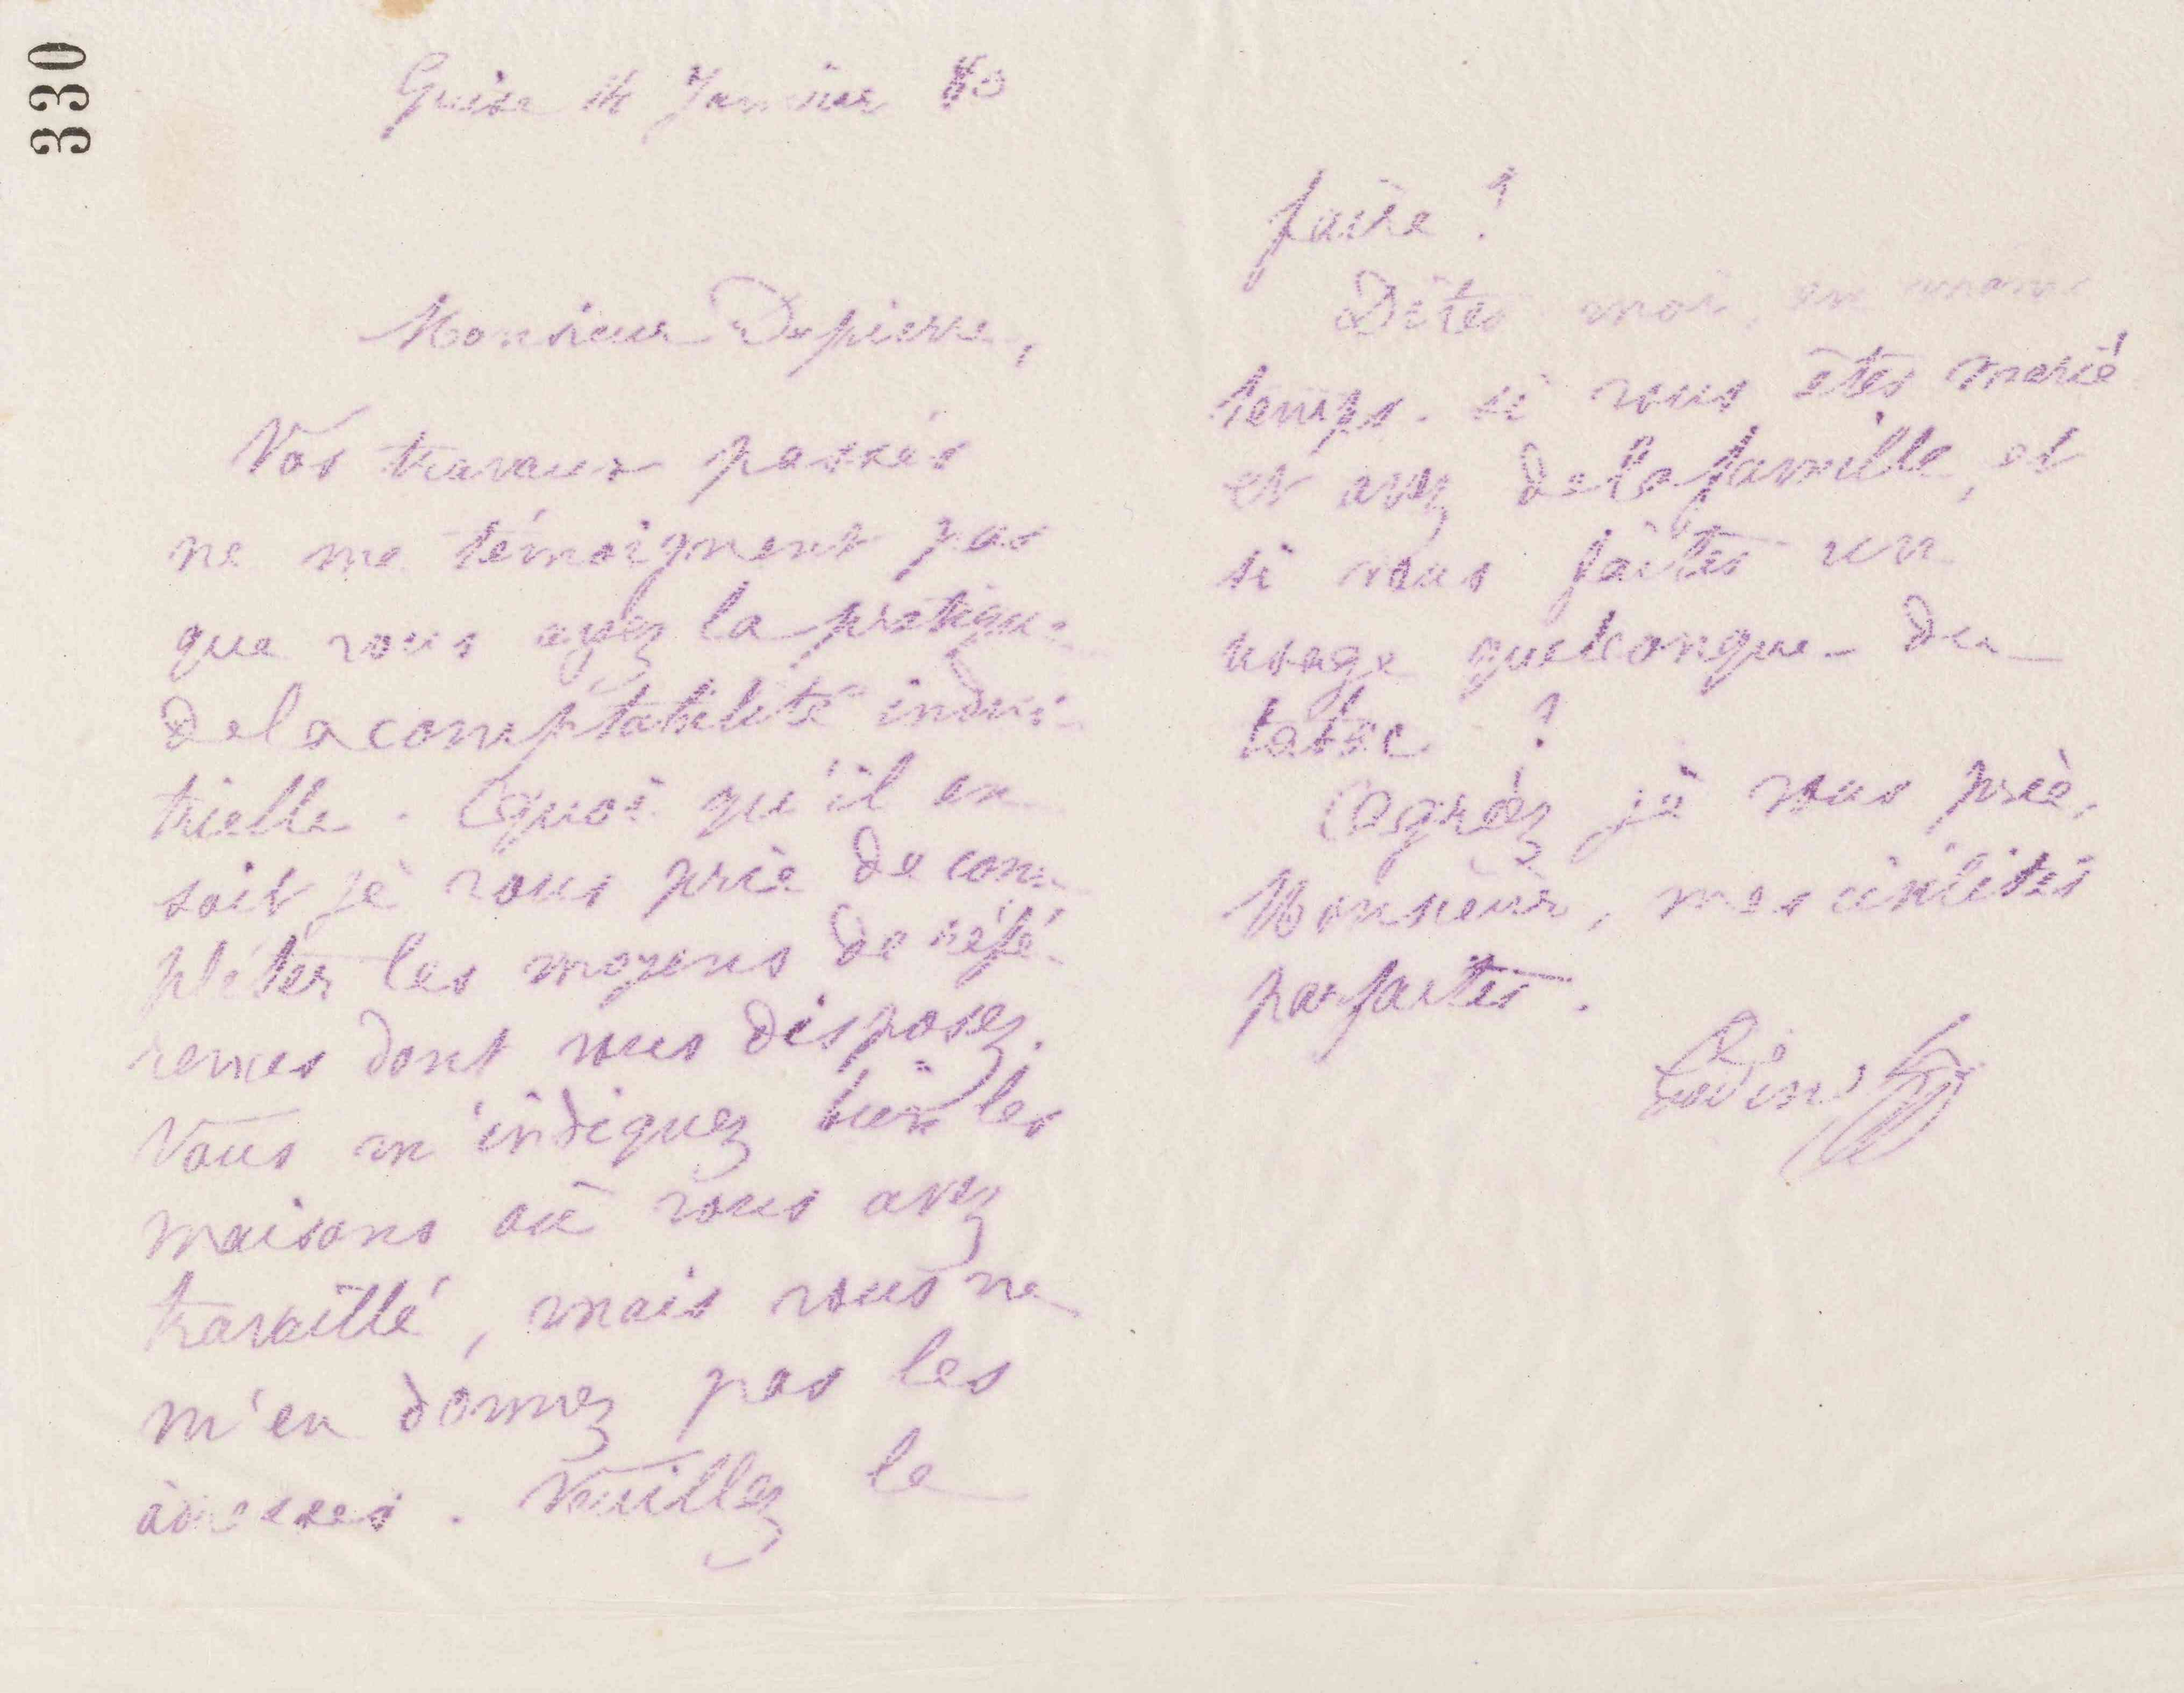 330
Guise 14 Janvier 80
Monsieur Depierre,
Vos travaux passés
ne me témoignent pas
que vous ayez la pratique
de la comptabilité indus-
trielle. Quoi qu'il en
soit je vous prie de com-
pléter les moyens de réfé-
rences dont vous disposez.
Vous m'indiquez bien les
maisons où vous avez
travaillé, mais vous ne
m'en donnez pas les
adresses. Veuillez le
faire ?
Dites moi, en même
temps. si vous êtes marié
et avez de la famille, et
si vous faites un
usage quelconque du
tabac ?
Agréez je vous prie,
Monsieur, mes civilités
parfaites.
Godin